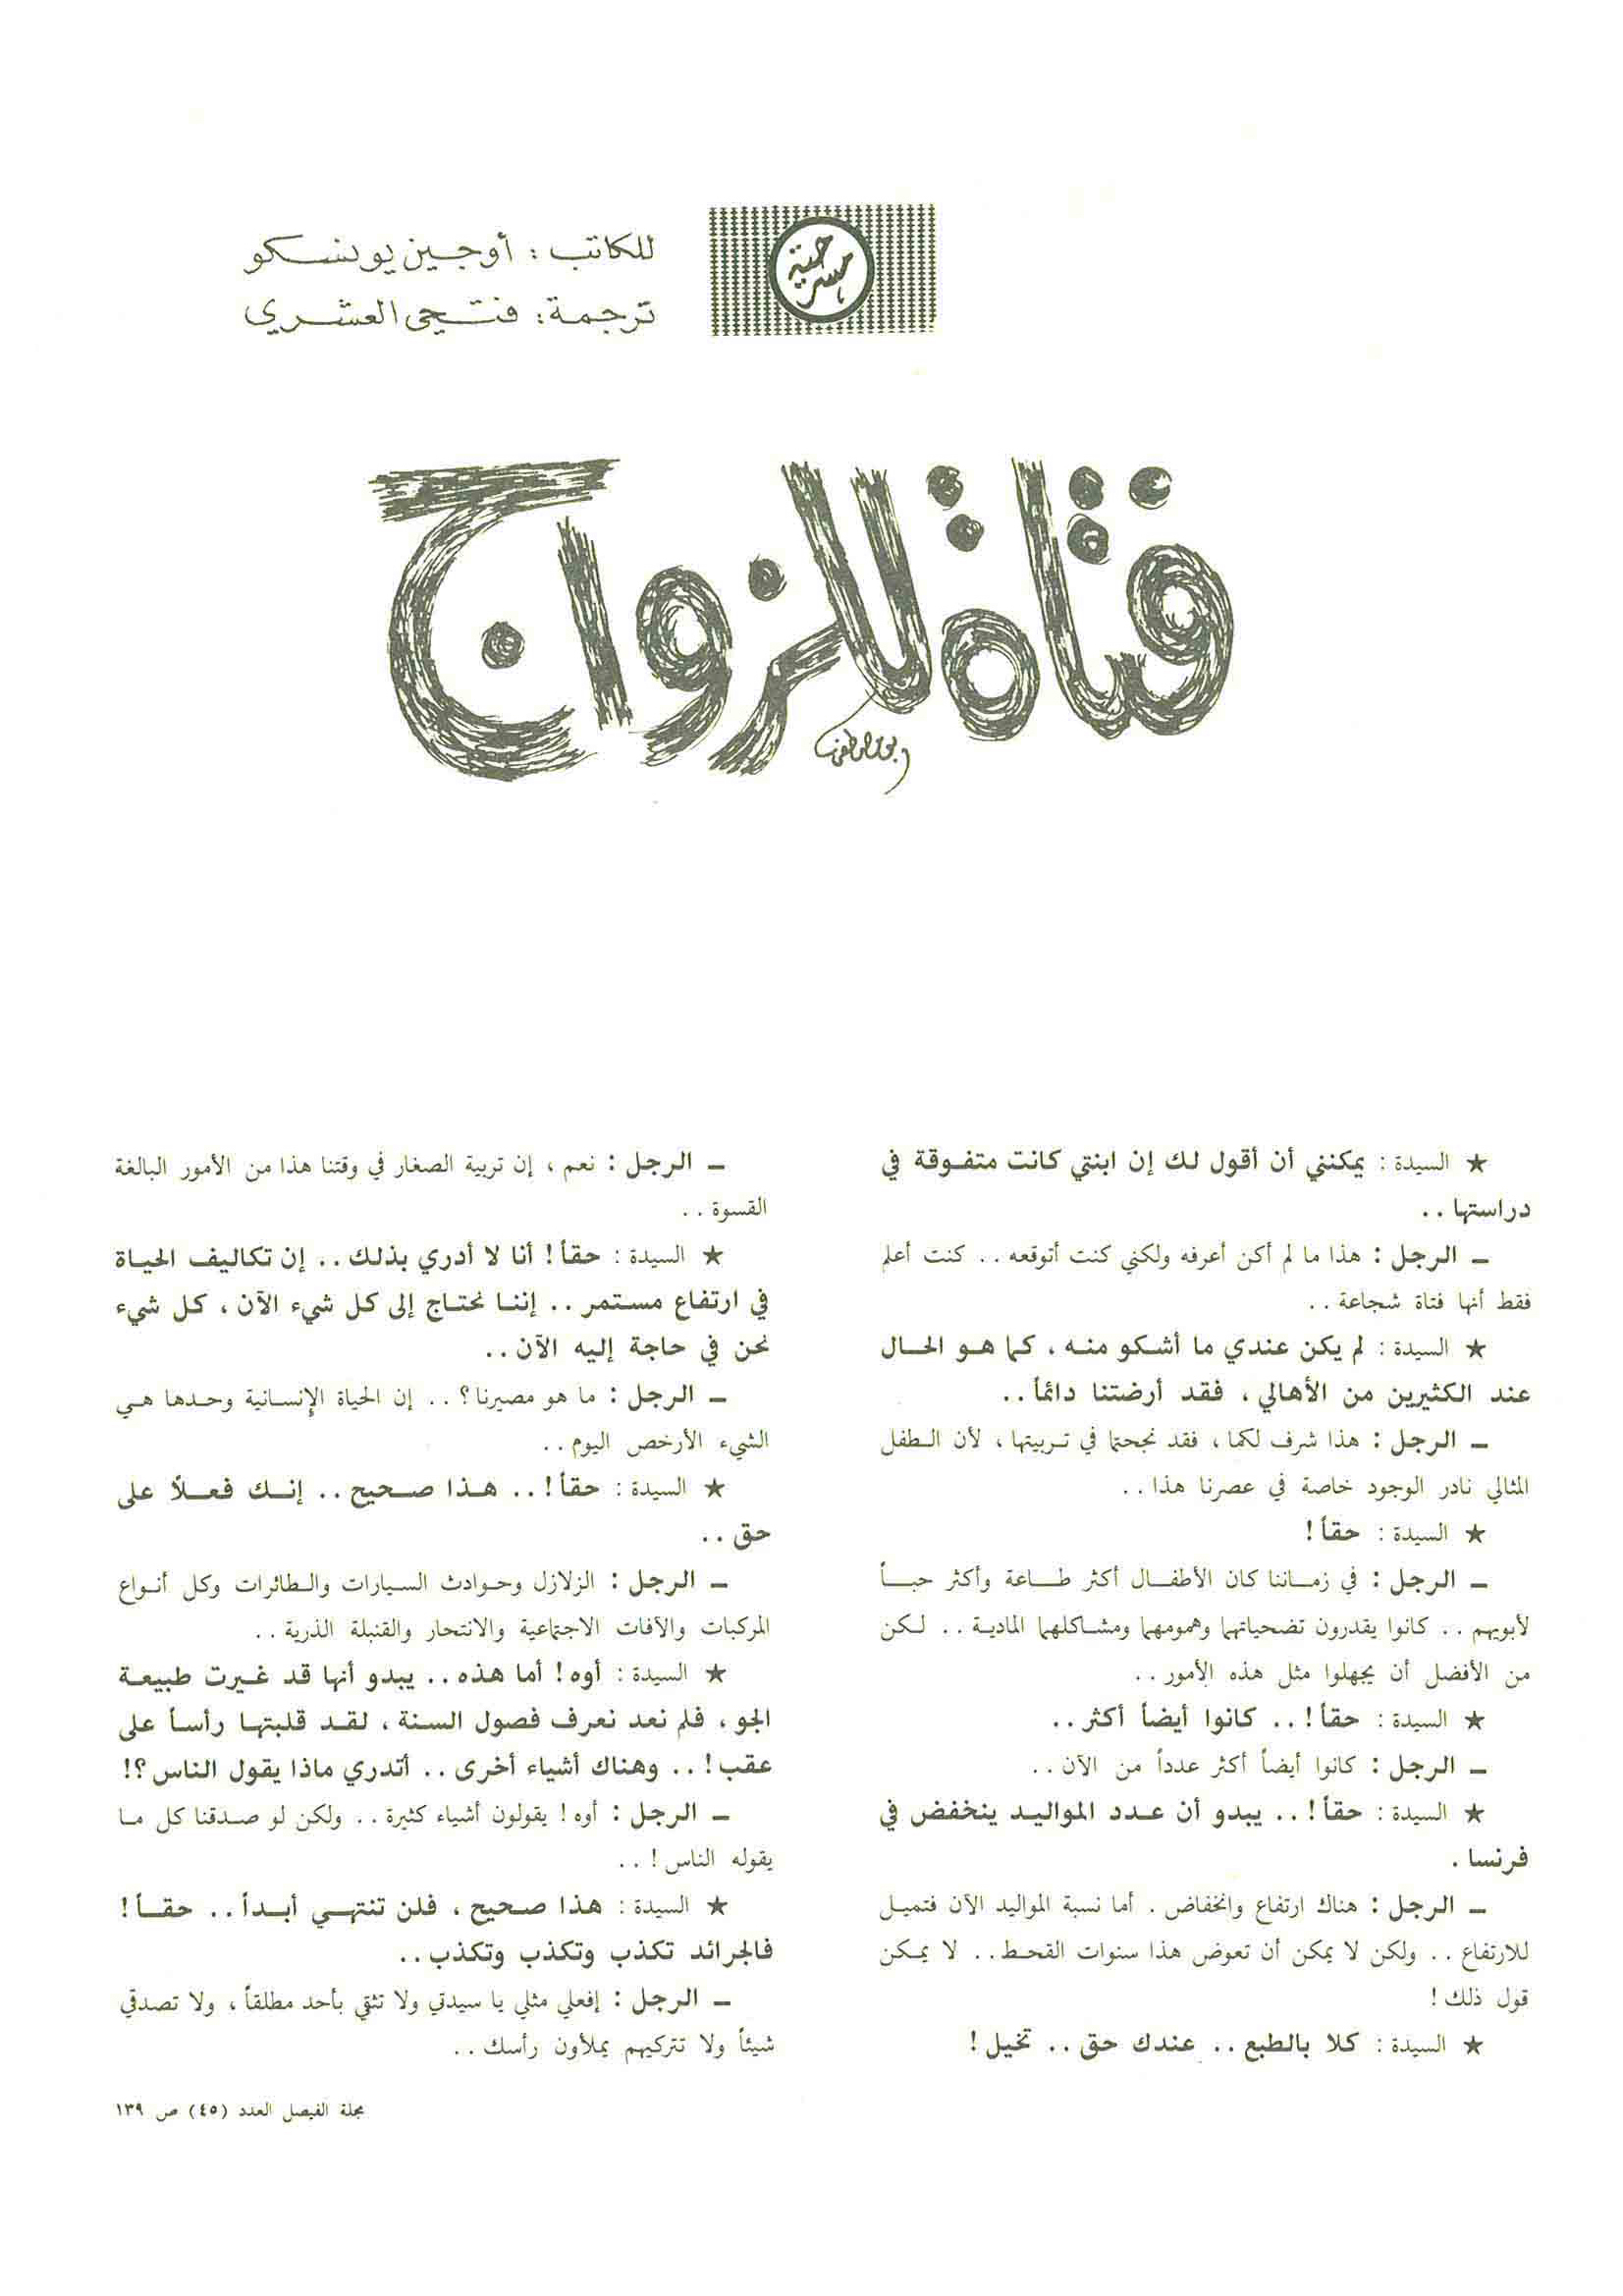 مسرحية
للكاتب : أوجين يونسكو
ترجمة : فتحي العشري
فتاة للزواج
★ السيدة : يمكنني أن أقول لك إن ابنتي كانت متفـوقة في
دراستها . .
ـ الرجل : هذا ما لم أكن أعرفه ولكني كنت أتوقعه . . كنت أعلم
فقط أنها فتاة شجاعة . .
★ السيدة : لم يكن عندي ما أشكو منه ، كما هو الحال
عند الكثيرين من الأهالي ، فقد أرضتنا دائماً . .
ـ الرجل : هذا شرف لكما ، فقد نجحتما في تربيتها ، لأن الطفل
المثالي نادر الوجود خاصة في عصرنا هذا . .
★ السيدة : حقاً !
ـ الرجل : في زماننا كان الأطفال أكثر طاعة وأكثر حباً
لأبويهم . . كانوا يقدرون تضحياتهما وهمومهما ومشاكلهما المادية . . لكن
من الأفضل أن يجهلوا مثل هذه الأمور . .
★ السيدة : حقاً ! . . كانوا أيضاً أكثر . .
ـ الرجل : كانوا أيضاً أكثر عدداً من الآن . .
★ السيدة : حقاً ! . . يبدو أن عدد المواليد ينخفض في
فرنسا .
ـ الرجل : هناك ارتفاع وانخفاض . أما نسبة المواليد الآن فتميل
للارتفاع . . ولكن لا يمكن أن تعوض هذا سنوات القحط . . لا يمكن
قول ذلك !
★ السيدة : كلا بالطبع . . عندك حق . . تخيل !
ـ الرجل : نعم ، إن تربية الصغار في وقتنا هذا من الأمور البالغة
القسوة . .
★ السيدة : حقاً ! أنا لا أدري بذلك . . إن تكاليف الحياة
في ارتفاع مستمر . . إننا نحتاج إلى كل شيء الآن ، كل شيء
نحن في حاجة إليه الآن . .
ـ الرجل : ما هو مصيرنا ؟ . . إن الحياة الإنسانية وحدها هي
الشيء الأرخص اليوم . .
★ السيدة : حقاً ! . . هذا صحيح . . إنك فعلاً على
حق . .
ـ الرجل : الزلازل وحوادث السيارات والطائرات وكل أنواع
المركبات والآفات الاجتماعية والانتحار والقنبلة الذرية . .
★ السيدة : أوه ! أما هذه . . يبدو أنها قد غيرت طبيعة
الجو ، فلم نعد نعرف فصول السنة ، لقد قلبتها رأساً على
عقب ! . . وهناك أشياء أخرى . . أتدري ماذا يقول الناس ؟!
ـ الرجل : أوه ! يقولون أشياء كثيرة . . ولكن لو صدقنا كل ما
يقوله الناس ! . .
★ السيدة : هذا صحيح ، فلن تنتهي أبداً . . حقاً !
فالجرائد تكذب وتكذب وتكذب . .
ـ الرجل : إفعلي مثلي يا سيدتي ولا تثقي بأحد مطلقاً ، ولا تصدقي
شيئاً ولا تتركيهم يملأون رأسك . .
مجلة الفيصل العدد (٤٥) ص ١٣٩